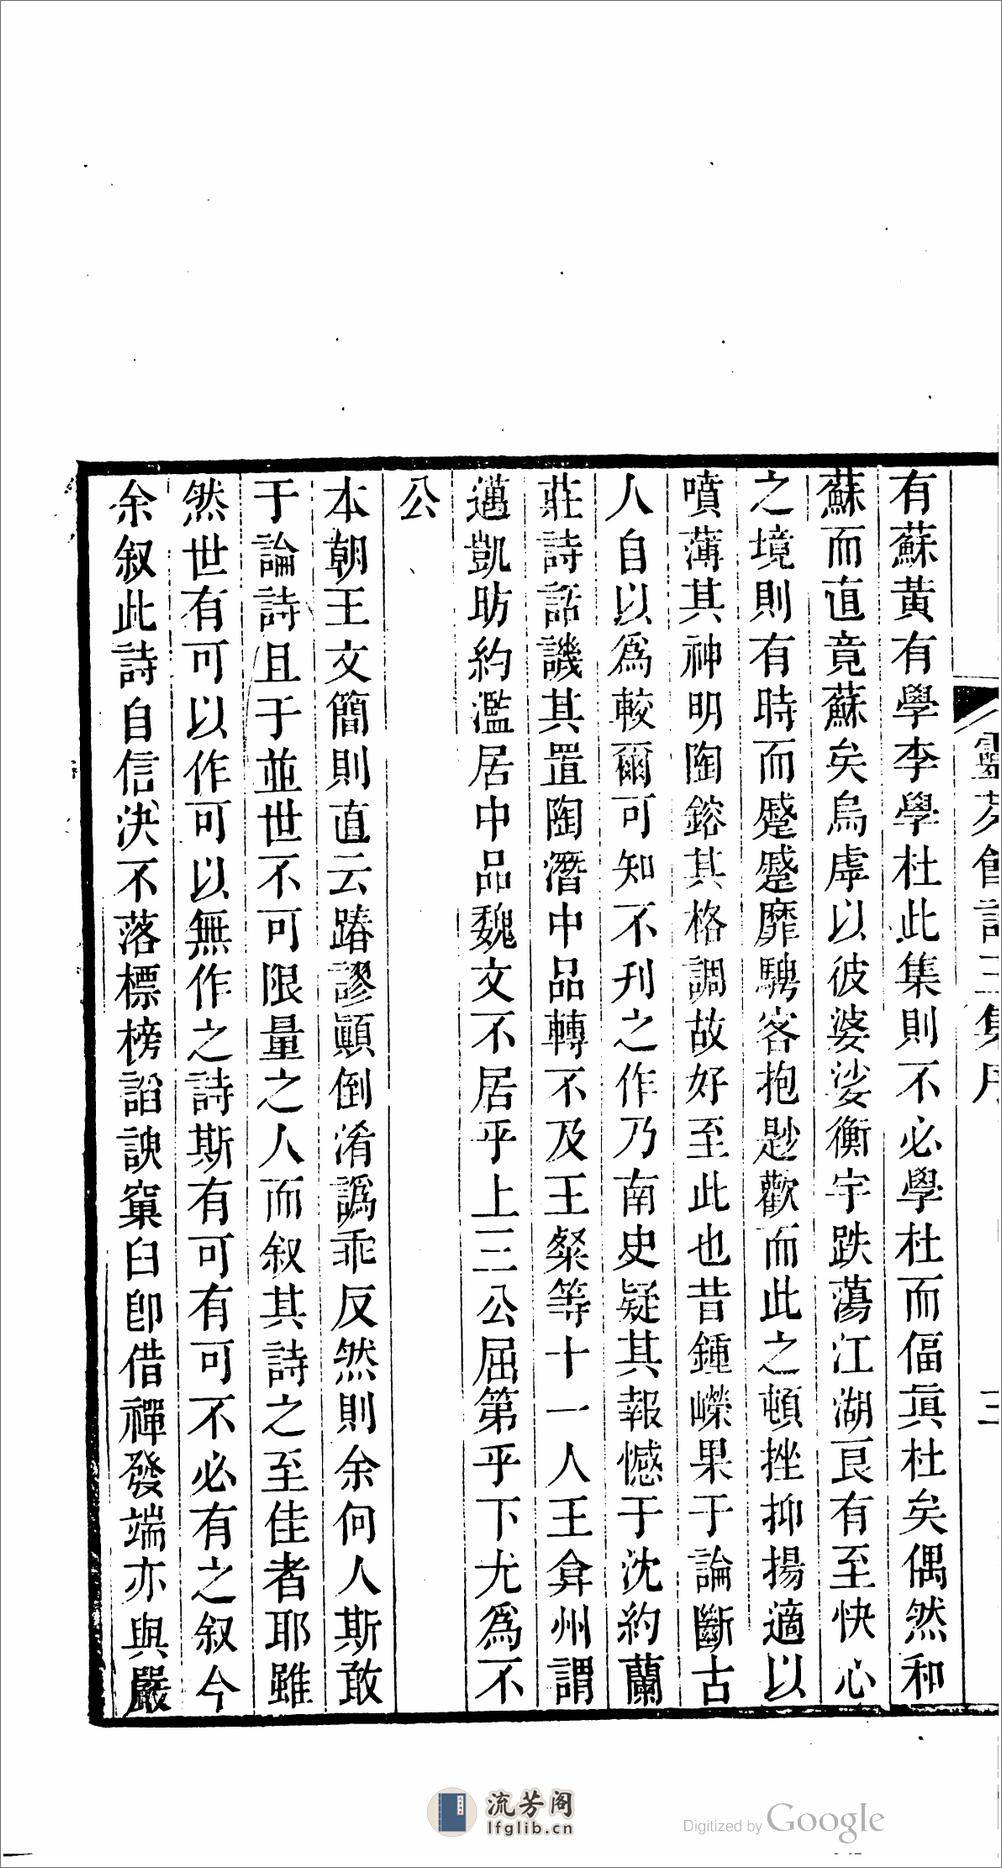 三
有蘇黃有學李學杜此集則不必學杜而偪眞杜矣偶然和
蘇而直竟蘇矣烏虖以彼婆娑衡宇跌蕩江湖良有至快心
之境則有時而蹙蹙靡騁客抱尟歡而此之頓挫抑揚適以
噴薄其神明陶鎔其格調故好至此也昔鍾嶸果于論斷古
人自以爲較爾可知不刋之作乃南史疑其報憾于沈約蘭
莊詩話譏其置陶潛中品轉不及王粲等十一人王弇州謂
邁凱昉約濫居中品魏文不居乎上三公屈第乎下尤爲不
公
本朝王文簡則直云踳謬顚倒淆譌乖反然則余何人斯敢
于論詩且于並世不可限量之人而叙其詩之至佳者耶雖
然世有可以作可以無作之詩斯有可有可不必有之叙今
余叙此詩自信決不落標榜謟諛窠臼卽借禪發端亦與嚴
流芳阁
lfglib.cn
Digitized by Google